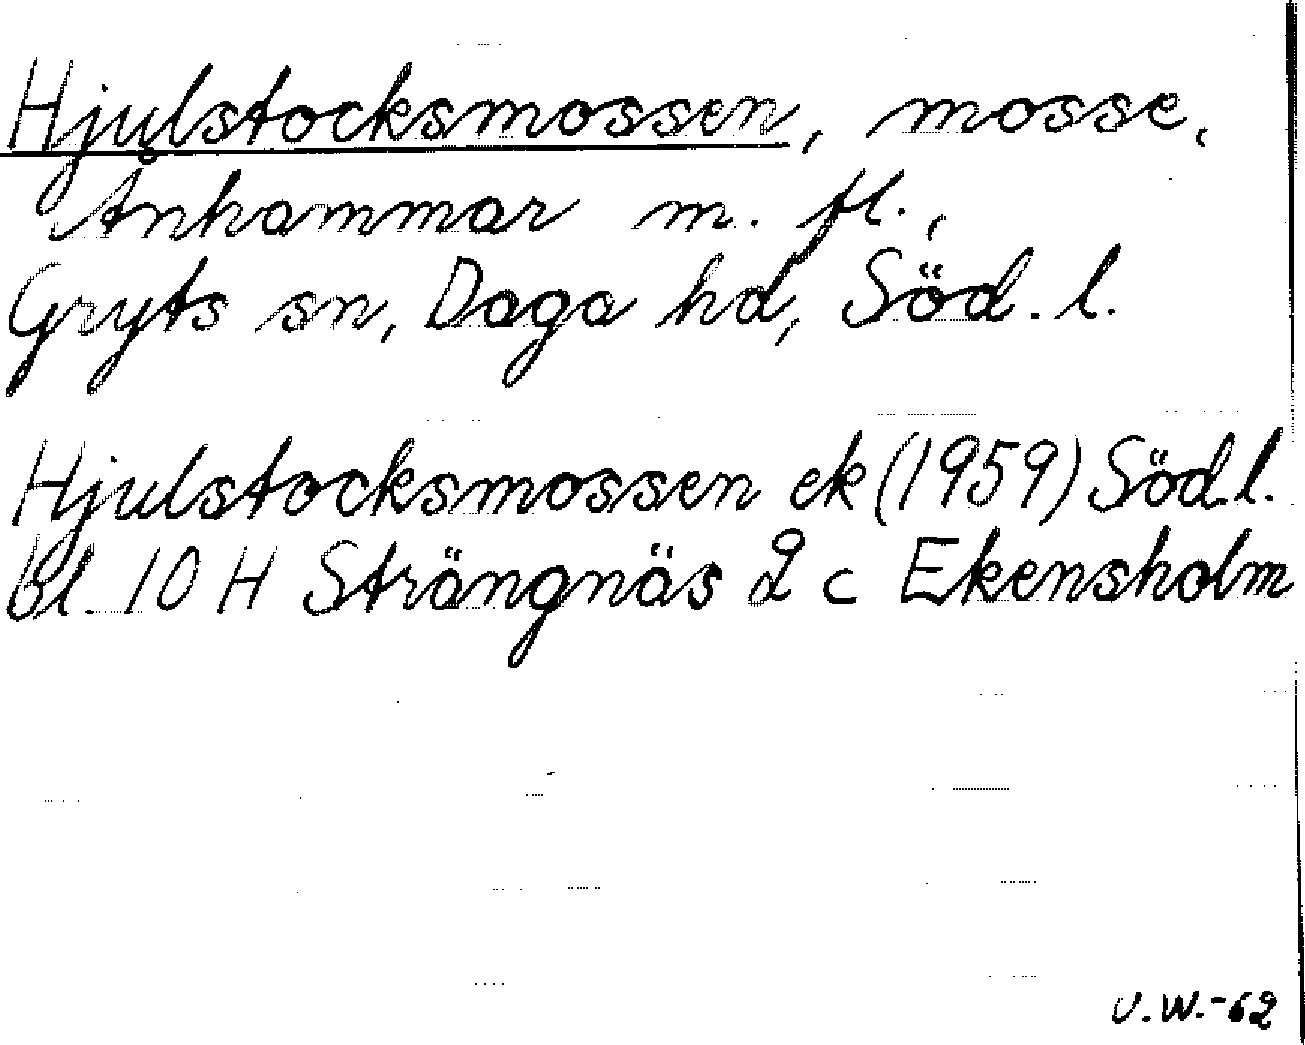 Hjulstocksmossen, mosse,
Ånhammar m. fl.,
Gryts sn, Daga hd, Söd. l.
Hjulstocksmossen ek (1959) Söd.l.
bl. 10 H Strängnäs 2 c Ekensholm
U.W.-62